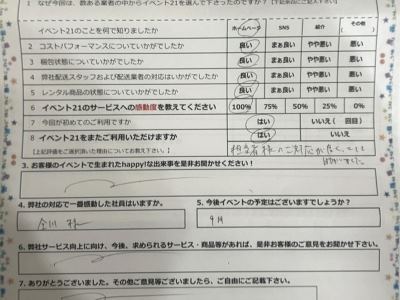 1 なぜ今回は、数ある業者の中からイベント21を選んで下さったのですか？【下記余白にご記入下さい】
イベント21のことを何で知りましたか ホームページ SNS 紹介 その他
2 コストパフォーマンスについていかがでしたか 良い まぁ良い やや悪い 悪い
3 梱包状態についていかがでしたか 良い まぁ良い やや悪い 悪い
4 弊社配送スタッフおよび配送業者の対応はいかがでしたか 良い まぁ良い やや悪い 悪い
5 レンタル商品の状態についていかがでしたか 良い まぁ良い やや悪い 悪い
6 イベント21のサービスへの感動度を教えてください 100% 75% 50% 25% 0%
7 今回が初めてのご利用ですか はい いいえ( 回目)
8 イベント21をまたご利用いただけますか はい いいえ
【上記評価をご選択頂いた理由についてお教え下さい。】 担当者様のご対応が良く、
3. お客様のイベントで生まれたhappy!な出来事を是非お聞かせください！
4. 弊社の対応で一番感動した社員はいますか。 5. 今後イベントの予定はございますでしょうか？
様 9月
6. 弊社サービス向上に向け、今後、求められるサービス・商品等があれば、是非お客様のご意見をお聞かせ下さい。
7. ありがとうございました。その他ご意見等ございましたら、ご自由にご記載下さい。